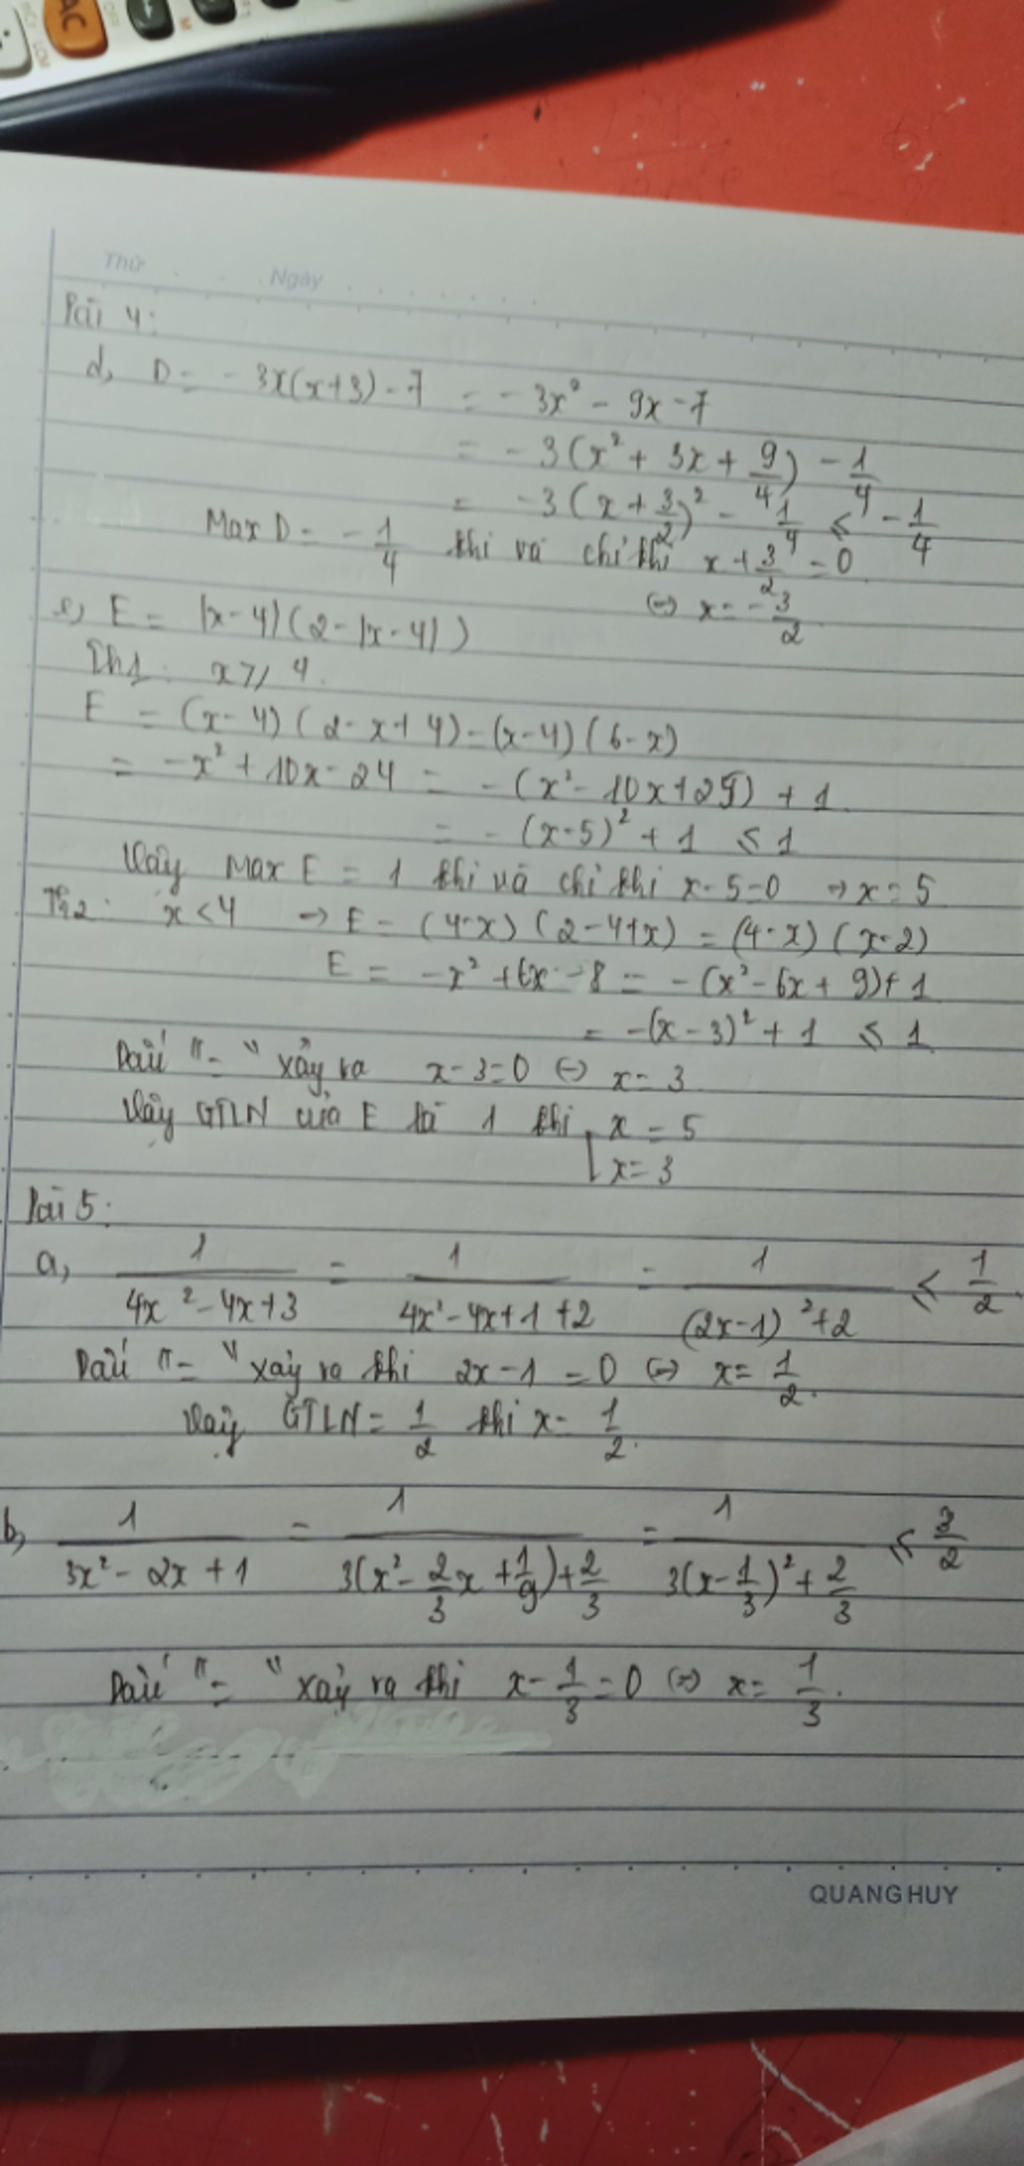 AC
LCM
Thứ Ngày
Bài 4:
d, D = - 3x(x+3) - 7 = - 3x² - 9x - 7
= - 3(x² + 3x + 9/4) - 1/4
= - 3(x + 3/2)² - 1/4 ≤ - 1/4
Max D = - 1/4 khi và chỉ khi x + 3/2 = 0
⇔ x = - 3/2
e, E = |x - 4|(2 - |x - 4|)
Th1: x ≥ 4.
E = (x - 4)(2 - x + 4) = (x - 4)(6 - x)
= - x² + 10x - 24 = - (x² - 10x + 25) + 1
= - (x - 5)² + 1 ≤ 1
Vậy Max E = 1 khi và chỉ khi x - 5 = 0 → x = 5
Th2: x < 4 → E = (4 - x)(2 - 4 + x) = (4 - x)(x - 2)
E = - x² + 6x - 8 = - (x² - 6x + 9) + 1
= - (x - 3)² + 1 ≤ 1
Dấu "=" xảy ra x - 3 = 0 ⇔ x = 3
Vậy GTLN của E là 1 khi [ x = 5
x = 3
Bài 5:
a, 1/(4x² - 4x + 3) = 1/(4x² - 4x + 1 + 2) = 1/((2x - 1)² + 2) ≤ 1/2
Dấu "=" xảy ra khi 2x - 1 = 0 ⇔ x = 1/2.
Vậy GTLN = 1/2 khi x = 1/2.
b, 1/(3x² - 2x + 1) = 1/(3(x² - 2/3x + 1/9) + 2/3) = 1/(3(x - 1/3)² + 2/3) ≤ 3/2
Dấu "=" xảy ra khi x - 1/3 = 0 ⇔ x = 1/3.
QUANG HUY